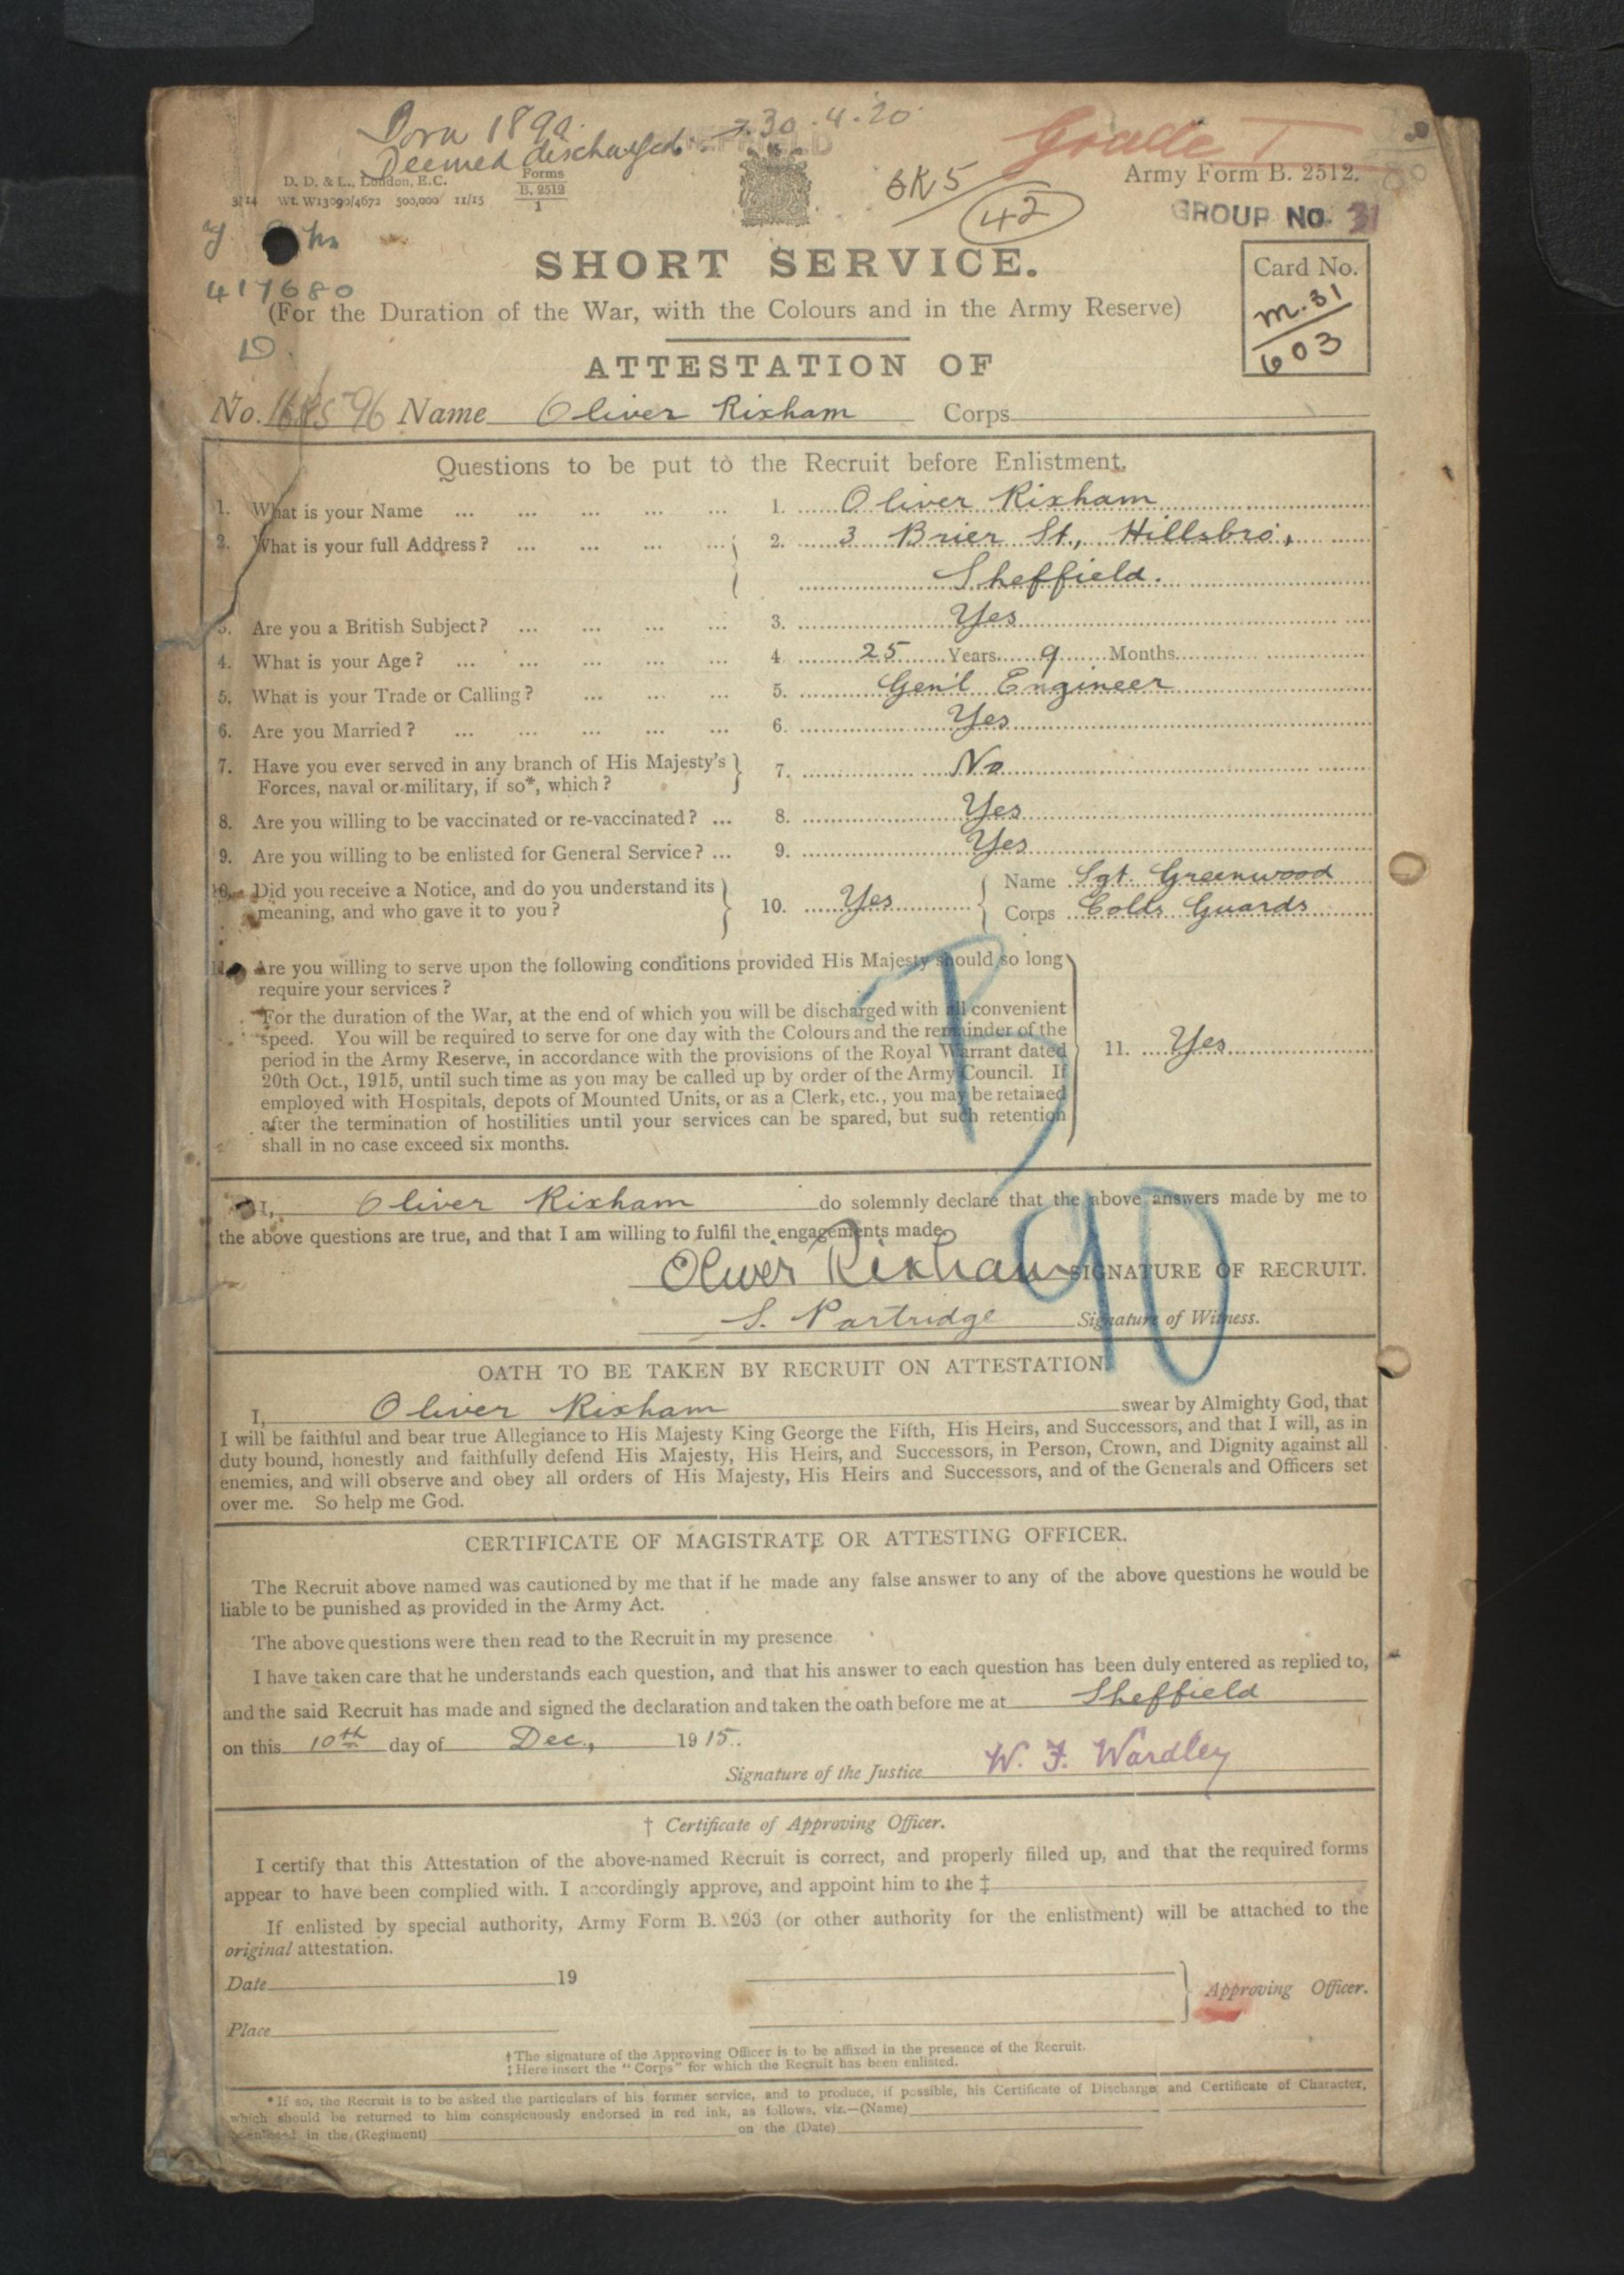 Born 1890.
Deemed discharged. 30.4.20
Grade I
D. D. & L., London, E.C.
Forms
B. 2512
1
Wt. W13090/4672 500,000 11/15
6K5
42
Army Form B. 2512.
GROUP NO. 31
417680
D.
SHORT SERVICE.
Card No.
M.31
603
(For the Duration of the War, with the Colours and in the Army Reserve)
ATTESTATION OF
No. Name Oliver Rixham Corps
Questions to be put to the Recruit before Enlistment.
1. What is your Name ... ... ... ... ... 1. Oliver Rixham
2. What is your full Address? ... ... ... ... 2. 3 Brier St., Hillsbro',
Sheffield.
3. Are you a British Subject? ... ... ... ... 3. Yes
4. What is your Age? ... ... ... ... ... 4. 25 Years 9 Months
5. What is your Trade or Calling? ... ... ... 5. Gen'l Engineer
6. Are you Married? ... ... ... ... ... 6. Yes
7. Have you ever served in any branch of His Majesty's
Forces, naval or military, if so*, which? 7. No
8. Are you willing to be vaccinated or re-vaccinated? ... 8. Yes
9. Are you willing to be enlisted for General Service? ... 9. Yes
10. Did you receive a Notice, and do you understand its
meaning, and who gave it to you? 10. Yes Name Sgt. Greenwood
Corps Colds Guards
11. Are you willing to serve upon the following conditions provided His Majesty should so long
require your services?
For the duration of the War, at the end of which you will be discharged with all convenient
speed. You will be required to serve for one day with the Colours and the remainder of the
period in the Army Reserve, in accordance with the provisions of the Royal Warrant dated
20th Oct., 1915, until such time as you may be called up by order of the Army Council. If
employed with Hospitals, depots of Mounted Units, or as a Clerk, etc., you may be retained
after the termination of hostilities until your services can be spared, but such retention
shall in no case exceed six months.
11. Yes
I, Oliver Rixham do solemnly declare that the above answers made by me to
the above questions are true, and that I am willing to fulfil the engagements made.
Oliver Rixham SIGNATURE OF RECRUIT.
S. Partridge Signature of Witness.
OATH TO BE TAKEN BY RECRUIT ON ATTESTATION.
I, Oliver Rixham swear by Almighty God, that
I will be faithful and bear true Allegiance to His Majesty King George the Fifth, His Heirs, and Successors, and that I will, as in
duty bound, honestly and faithfully defend His Majesty, His Heirs, and Successors, in Person, Crown, and Dignity against all
enemies, and will observe and obey all orders of His Majesty, His Heirs and Successors, and of the Generals and Officers set
over me. So help me God.
CERTIFICATE OF MAGISTRATE OR ATTESTING OFFICER.
The Recruit above named was cautioned by me that if he made any false answer to any of the above questions he would be
liable to be punished as provided in the Army Act.
The above questions were then read to the Recruit in my presence
I have taken care that he understands each question, and that his answer to each question has been duly entered as replied to,
and the said Recruit has made and signed the declaration and taken the oath before me at Sheffield
on this 10th day of Dec., 1915.
Signature of the Justice W. F. Wardley
† Certificate of Approving Officer.
I certify that this Attestation of the above-named Recruit is correct, and properly filled up, and that the required forms
appear to have been complied with. I accordingly approve, and appoint him to the ‡
If enlisted by special authority, Army Form B. 203 (or other authority for the enlistment) will be attached to the
original attestation.
Date 19
Approving Officer.
Place
† The signature of the Approving Officer is to be affixed in the presence of the Recruit.
‡ Here insert the "Corps" for which the Recruit has been enlisted.
* If so, the Recruit is to be asked the particulars of his former service, and to produce, if possible, his Certificate of Discharge and Certificate of Character,
which should be returned to him conspicuously endorsed in red ink, as follows, viz.—(Name)
in the (Regiment) on the (Date)